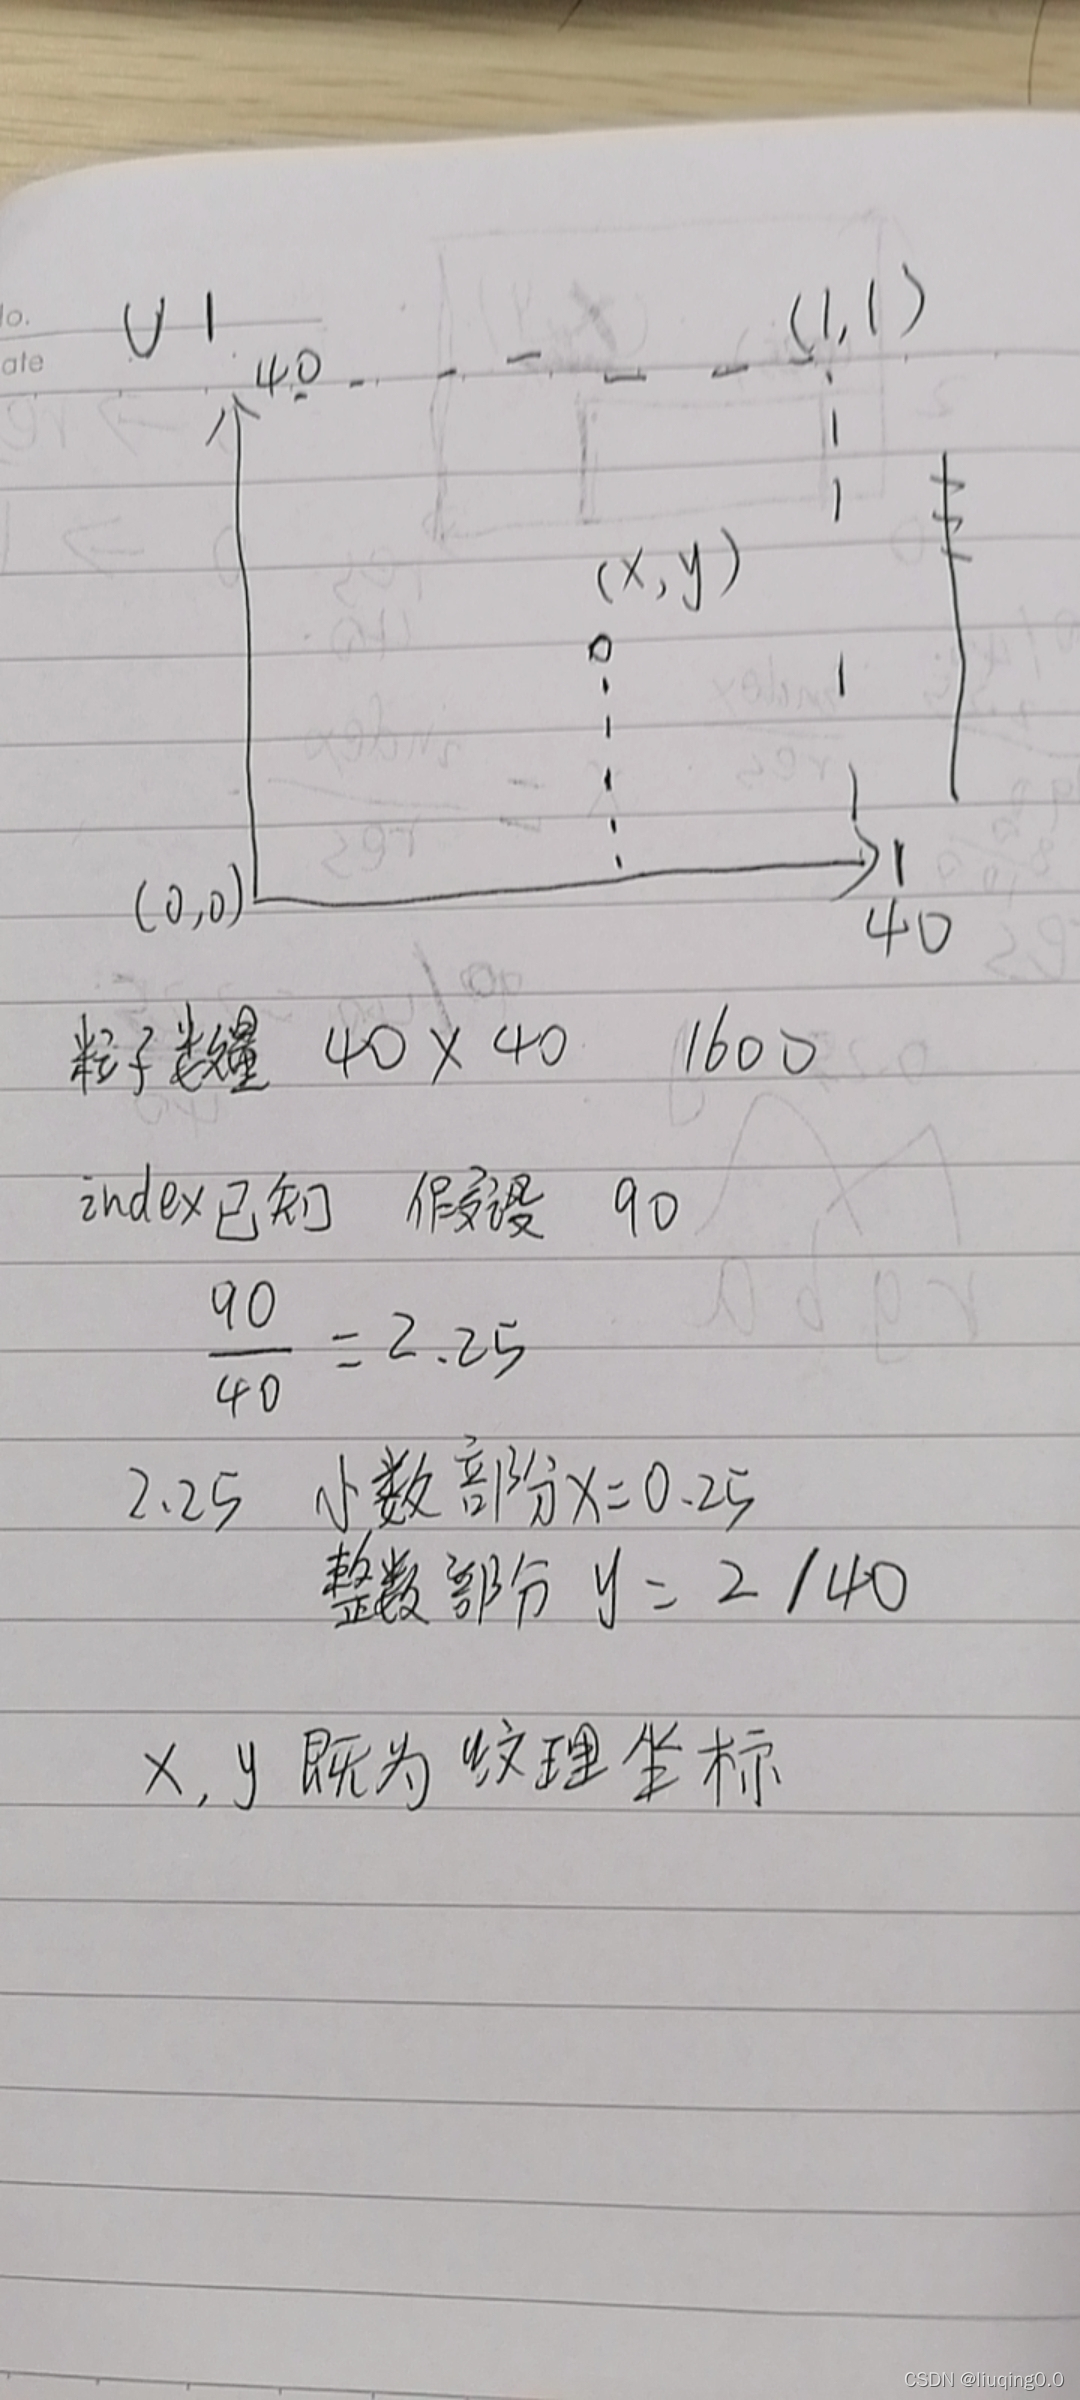 No.
ate
U 1
(1,1)
40
(x,y)
(0,0)
1
40
粒子数量 40 x 40 1600
index已知 假设 90
90
40
= 2.25
2.25 小数部分x=0.25
整数部分 y = 2 /40
x,y 既为纹理坐标
CSDN @liuqing0.0